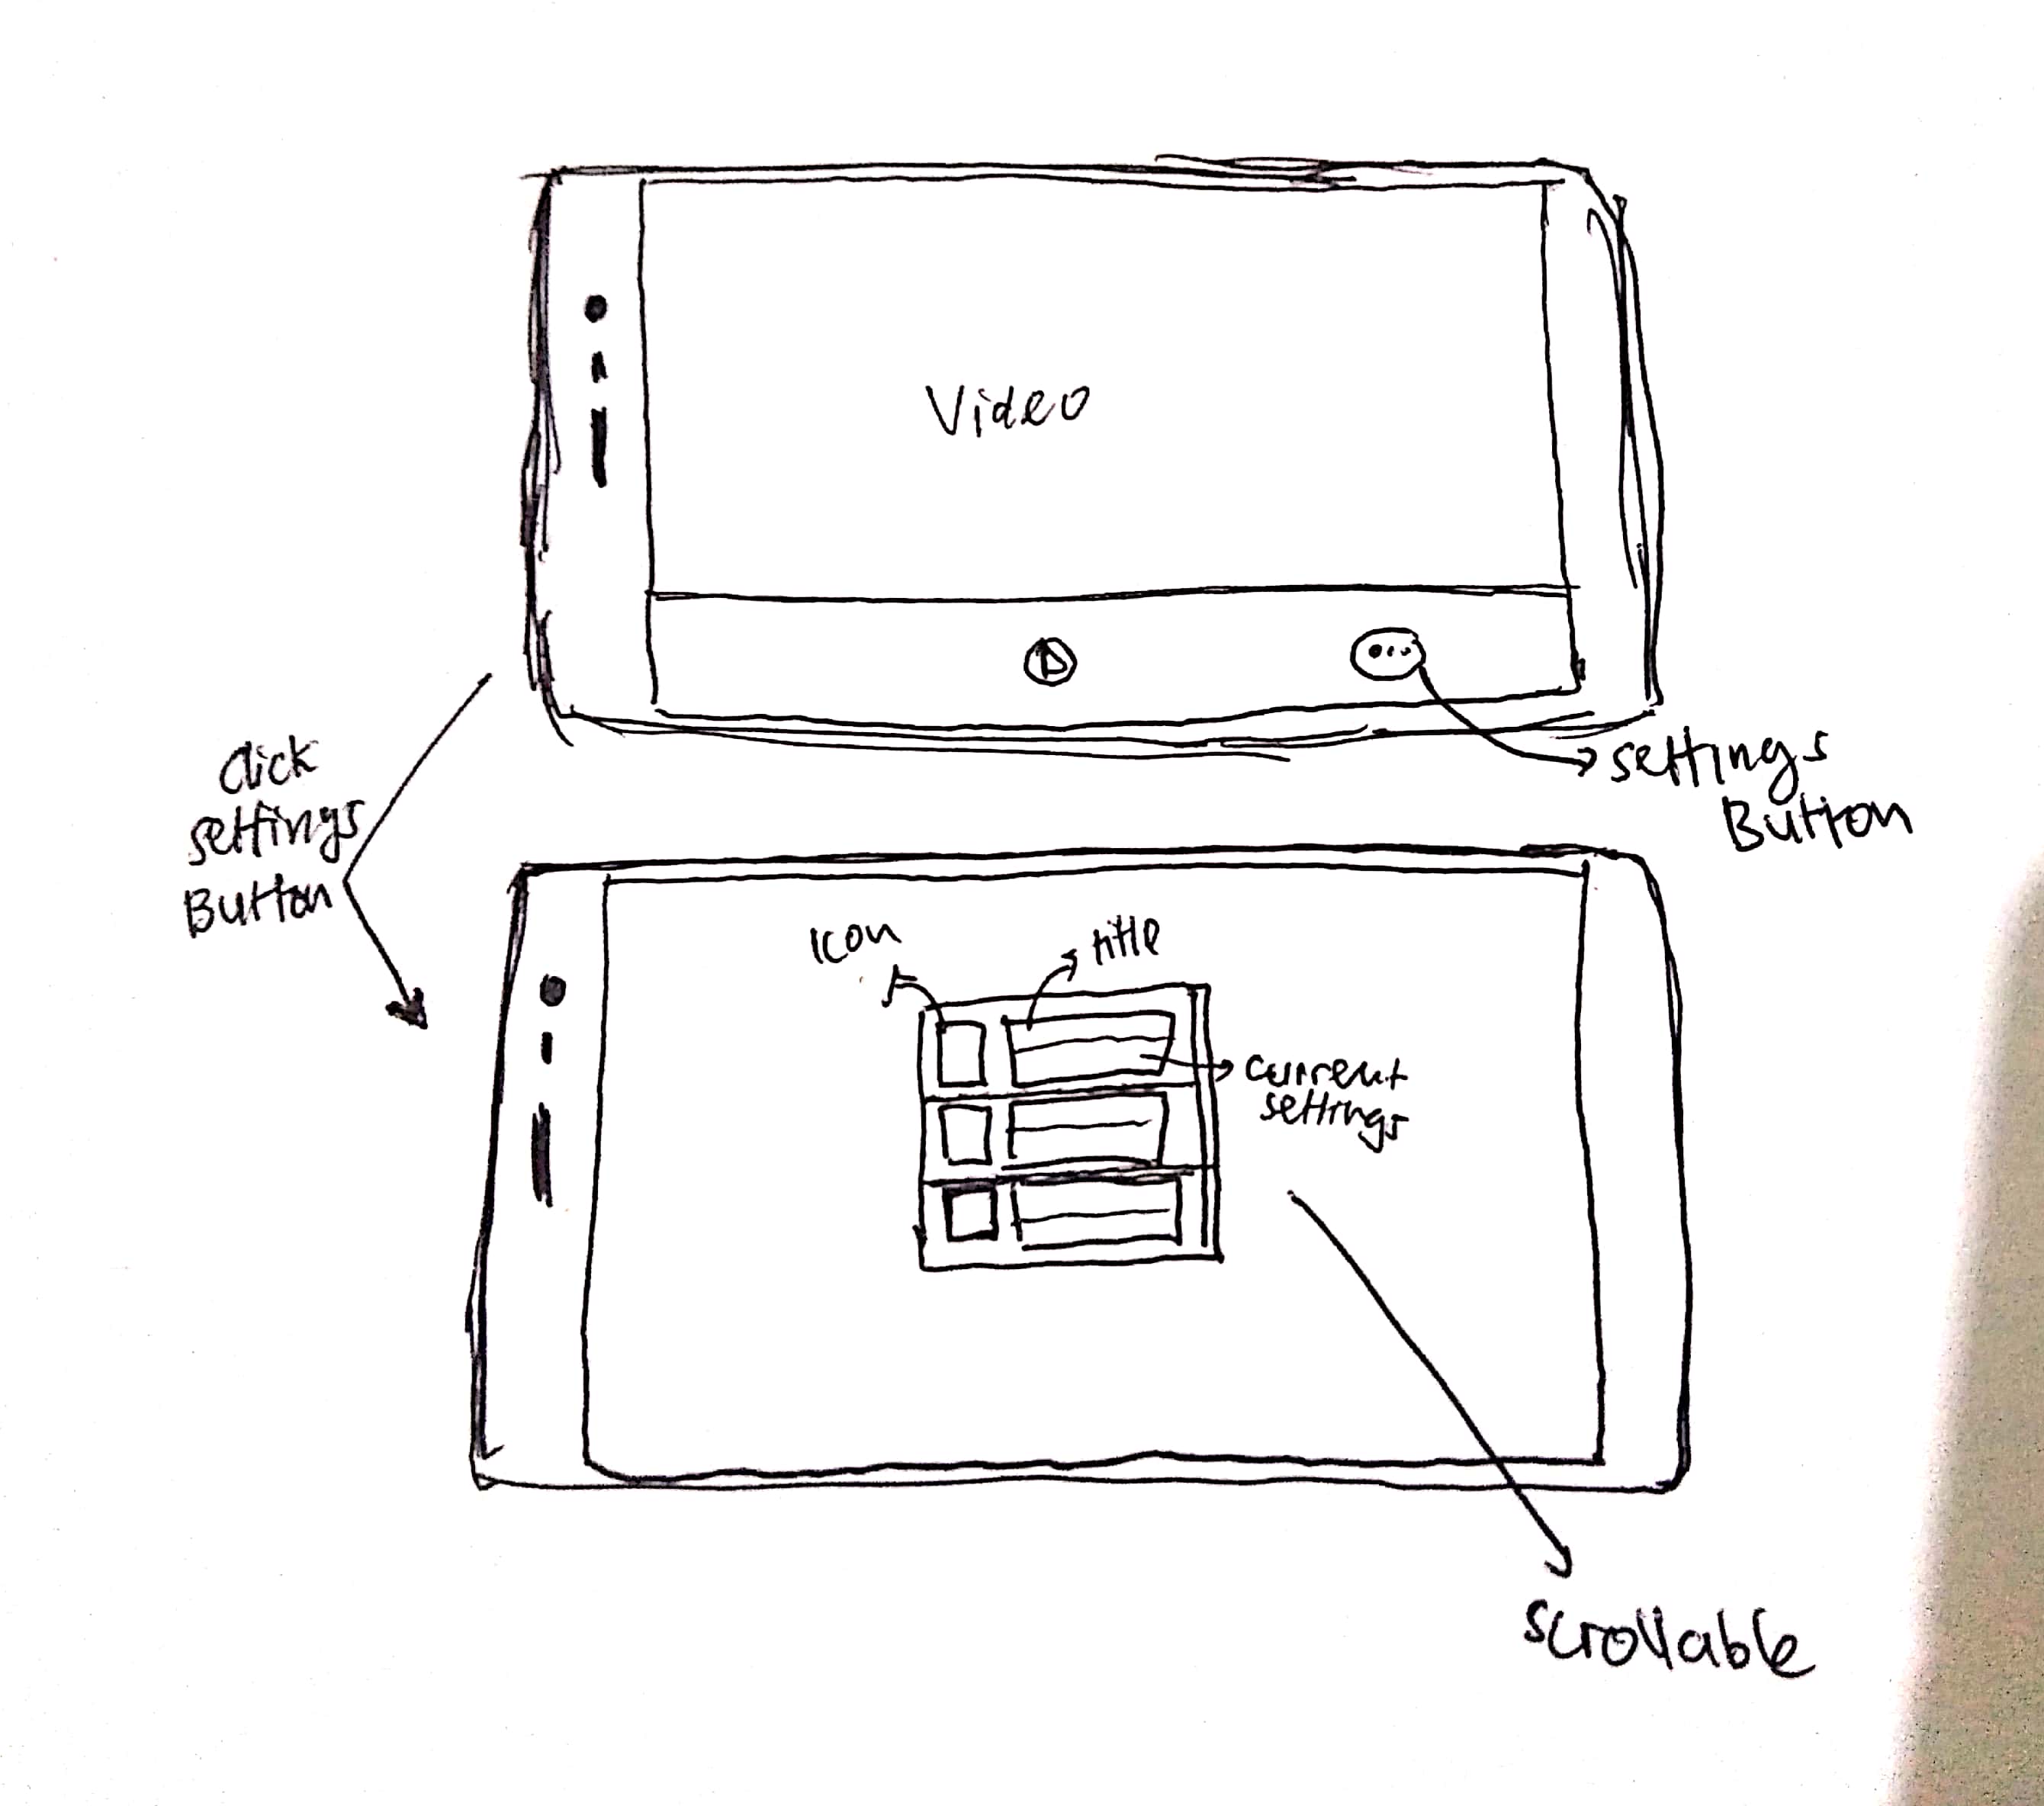 Video
settings
Button
Click
settings
Button
Icon
title
current
settings
scrollable